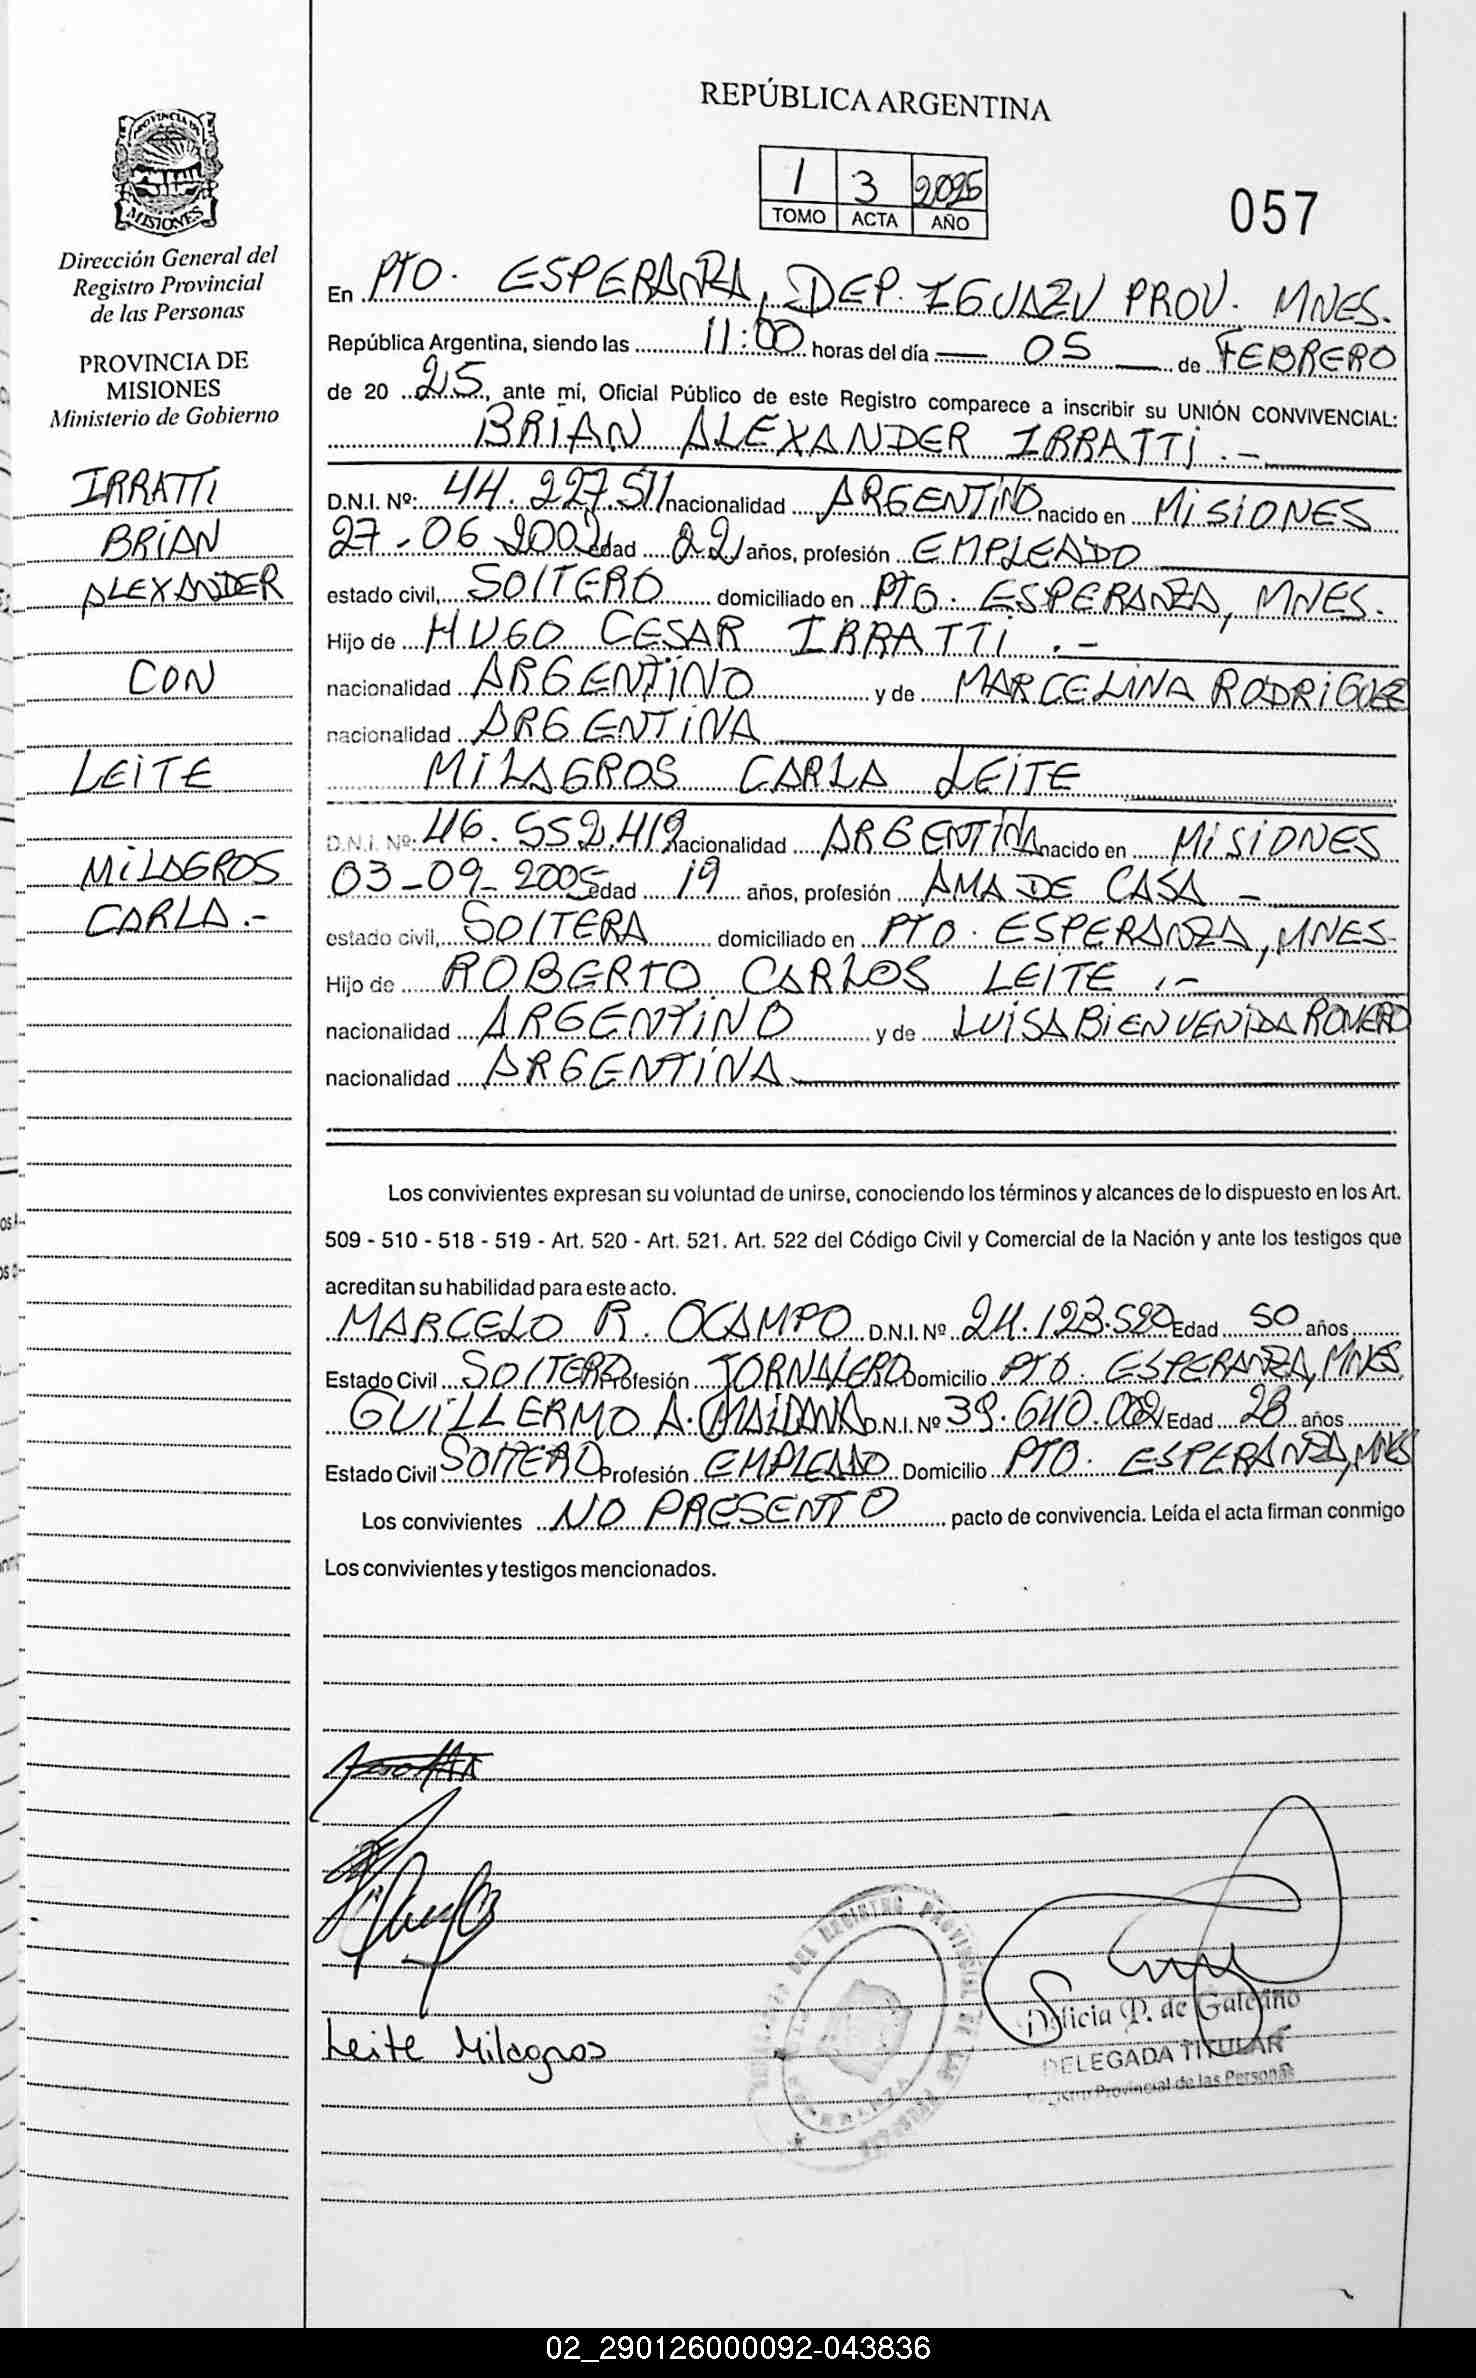 REPÚBLICA ARGENTINA
1 3 2025
TOMO ACTA AÑO
057
MISIONES
Dirección General del
Registro Provincial
de las Personas
PROVINCIA DE
MISIONES
Ministerio de Gobierno
IRRATTI
BRIAN
ALEXANDER
CON
LEITE
MILAGROS
CARLA.-
En PTO. ESPERANZA, DEP. IGUAZU PROV. MNES.
República Argentina, siendo las 11:00 horas del día — 05 — de FEBRERO
de 20 25, ante mí, Oficial Público de este Registro comparece a inscribir su UNIÓN CONVIVENCIAL:
BRIAN ALEXANDER IRRATTI.-
D.N.I. Nº: 44.227.511 nacionalidad ARGENTINO nacido en MISIONES
27-06-2002 edad 22 años, profesión EMPLEADO
estado civil, SOLTERO domiciliado en PTO. ESPERANZA, MNES.
Hijo de HUGO CESAR IRRATTI.-
nacionalidad ARGENTINO y de MARCELINA RODRIGUEZ
nacionalidad ARGENTINA
MILAGROS CARLA LEITE
D.N.I. Nº: 46.552.419 nacionalidad ARGENTINA nacido en MISIONES
03-09-2005 edad 19 años, profesión AMA DE CASA -
estado civil, SOLTERA domiciliado en PTO. ESPERANZA, MNES.
Hijo de ROBERTO CARLOS LEITE.-
nacionalidad ARGENTINO y de LUISA BIENVENIDA ROMERO
nacionalidad ARGENTINA
Los convivientes expresan su voluntad de unirse, conociendo los términos y alcances de lo dispuesto en los Art.
509 - 510 - 518 - 519 - Art. 520 - Art. 521. Art. 522 del Código Civil y Comercial de la Nación y ante los testigos que
acreditan su habilidad para este acto.
MARCELO R. OCAMPO D.N.I. Nº 24.123.520 Edad 50 años
Estado Civil SOLTERO Profesión JORNALERO Domicilio PTO. ESPERANZA, MNES
GUILLERMO A. MAIDANA D.N.I. Nº 39.640.002 Edad 28 años
Estado Civil SOLTERO Profesión EMPLEADO Domicilio PTO. ESPERANZA, MNES
Los convivientes NO PRESENTO pacto de convivencia. Leída el acta firman conmigo
Los convivientes y testigos mencionados.
Leite Milagros
DEL REGISTRO PROVINCIAL DE LAS
ESPERANZA
de Galeano
DELEGADA TITULAR
Registro Provincial de las Personas
02_290126000092-043836